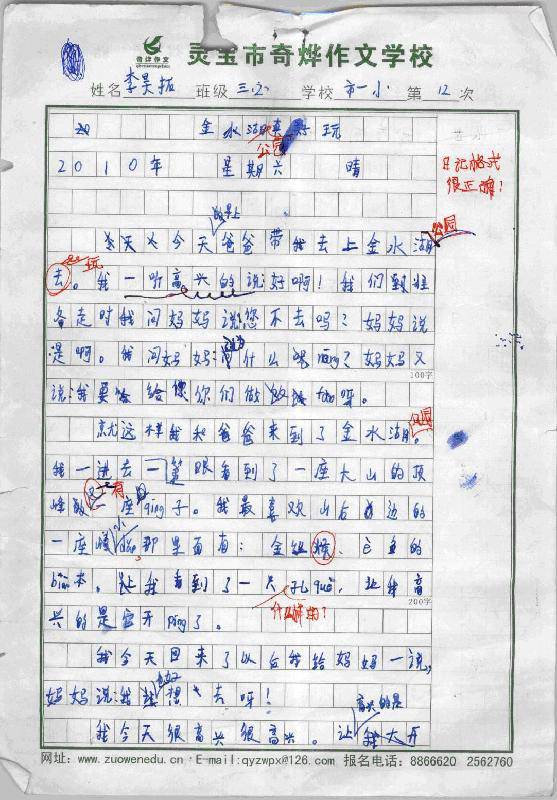 奇烨作文
灵宝市奇烨作文学校
姓名 李昊 班级 三 学校 市一小 第 12 次
金水湖真好玩
公园
2010年 星期六 晴
日记格式
很正确!
早上
今天爸爸带我去上金水湖
公园
去。我一听高兴的说好啊!我们到准
玩
备走时我问妈妈说您不去吗?妈妈说
是啊。我问妈妈为什么呢?妈妈又
100字
说:我要给你们做饭呀。
就这样我和爸爸来到了金水湖。
公园
我一进去一眼看到了一座大山的顶
又有
峰一座ting子。我最喜欢山右边的
小
一座那里面有:金、白色的
本。让我看到了一只孔que,让我高
200字
什么样的?
兴的是它开ping了。
我今天回来了以后我给妈妈一说,
妈妈说:我想去呀!
高兴的是
我今天很高兴很高兴。让我大开
网址:www.zuowenedu.cn · E-mail:qyzwpx@126.com 报名电话:8866620 2562760